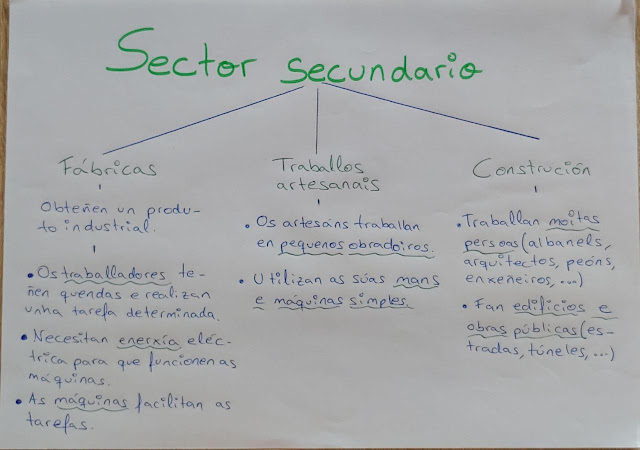 Sector secundario
Fábricas
Obteñen un produ-
to industrial.
• Os traballadores te-
ñen quendas e realizan
unha tarefa determinada.
• Necesitan enerxía eléc-
trica para que funcionen as
máquinas.
• As máquinas facilitan as
tarefas.
Traballos
artesanais
• Os artesáns traballan
en pequenos obradoiros.
• Utilizan as súas mans
e máquinas simples.
Construción
• Traballan moitas
persoas (albanels,
arquitectos, peóns,
enxeñeiros, ...)
• Fan edificios e
obras públicas (es-
tradas, túneles, ...)